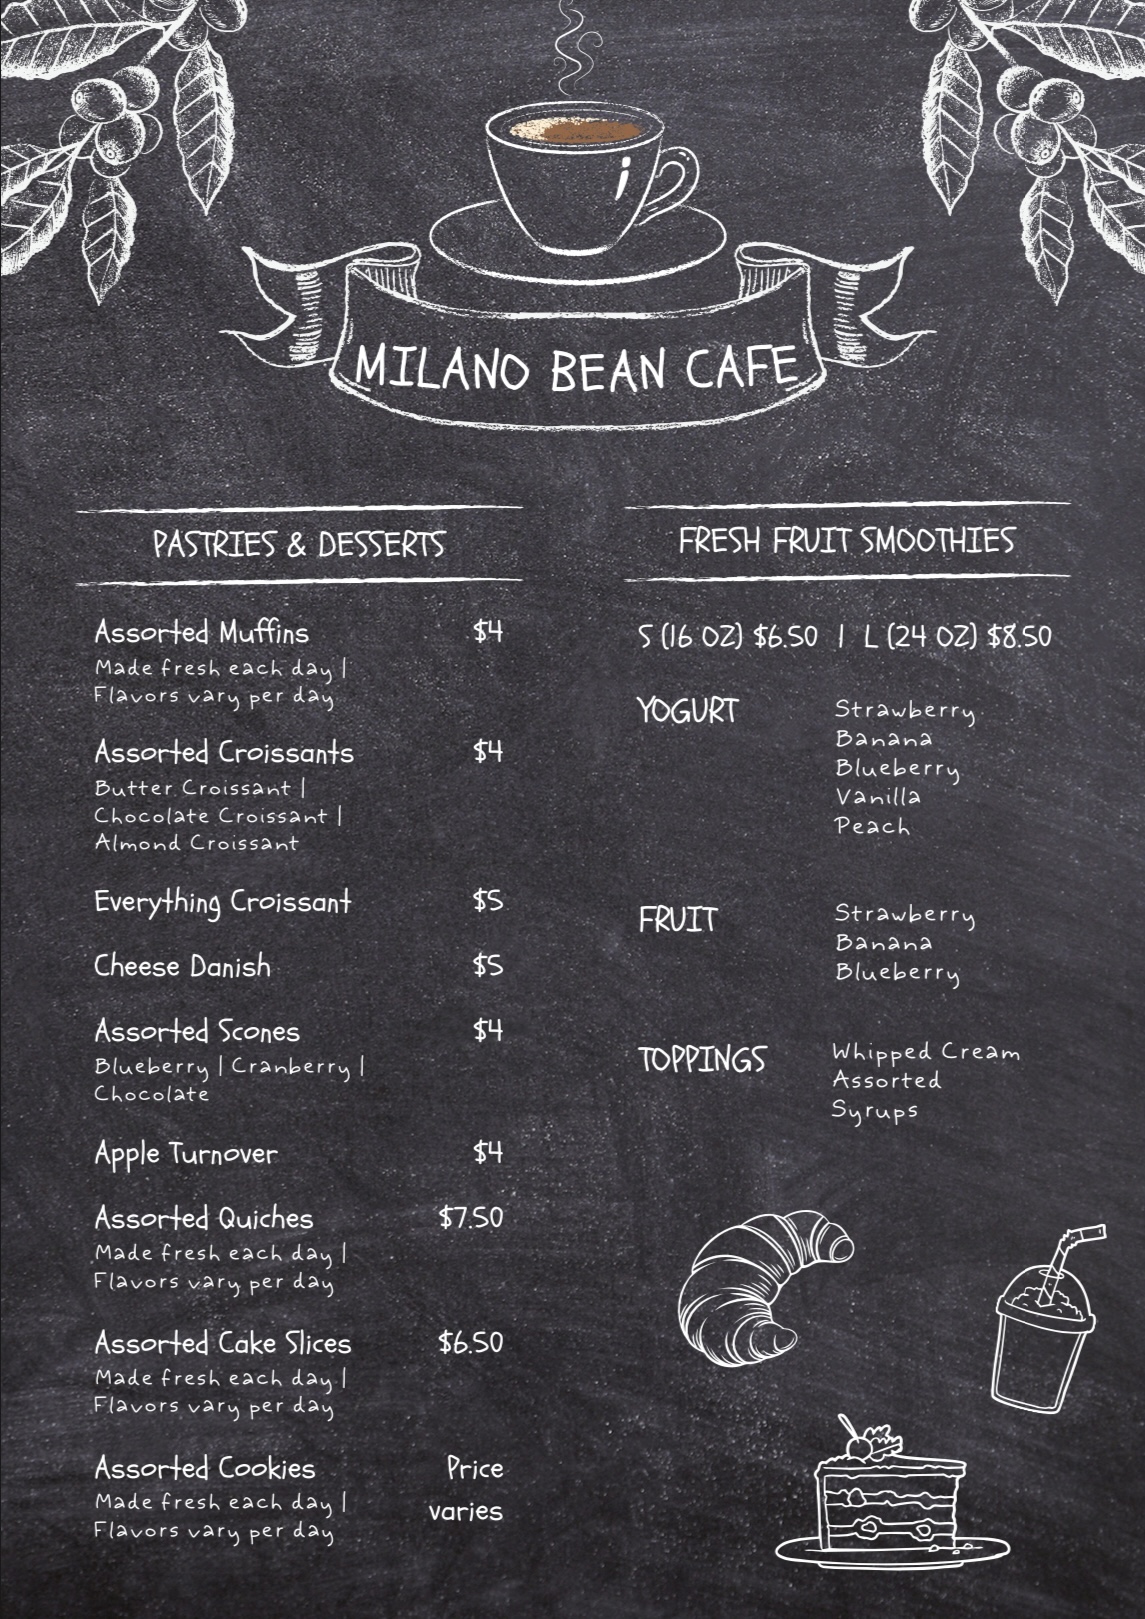 MILANO BEAN CAFE
PASTRIES & DESSERTS
Assorted Muffins $4
Made fresh each day |
Flavors vary per day
Assorted Croissants $4
Butter Croissant |
Chocolate Croissant |
Almond Croissant
Everything Croissant $5
Cheese Danish $5
Assorted Scones $4
Blueberry | Cranberry |
Chocolate
Apple Turnover $4
Assorted Quiches $7.50
Made fresh each day |
Flavors vary per day
Assorted Cake Slices $6.50
Made fresh each day |
Flavors vary per day
Assorted Cookies Price
varies
Made fresh each day |
Flavors vary per day
FRESH FRUIT SMOOTHIES
S (16 OZ) $6.50 | L (24 OZ) $8.50
YOGURT Strawberry
Banana
Blueberry
Vanilla
Peach
FRUIT Strawberry
Banana
Blueberry
TOPPINGS Whipped Cream
Assorted
Syrups